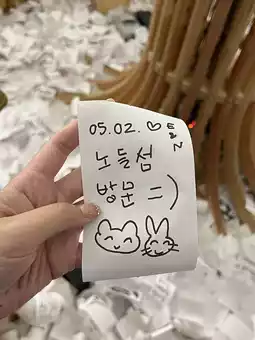 05.02. ♡ E&N
노들섬
방문 =)